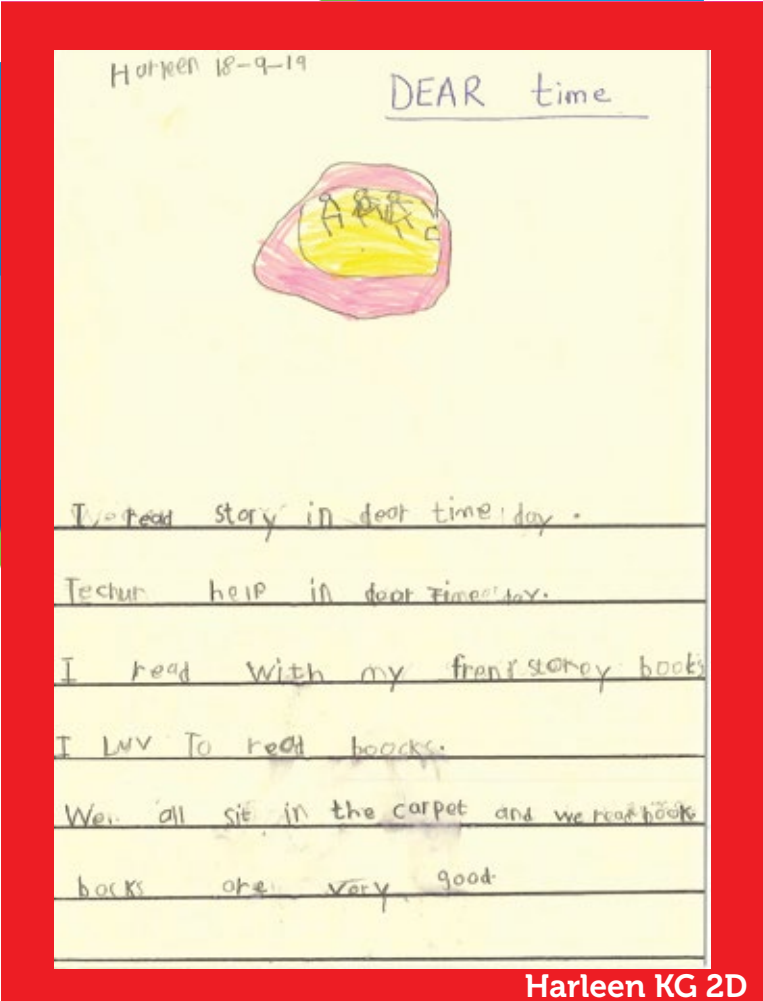 Harleen 18-9-19
DEAR time
I read story in dear time day.
Techur help in dear Time day.
I read with my frend storey books
I Luv To read boocks.
We all sit in the carpet and we read book
bocks are very good.
Harleen KG 2D